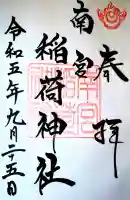 奉拝
南宮
稲荷神社
令和五年九月二十五日